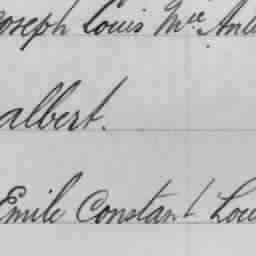 Joseph Louis Mce An
albert.
Emile Constant Lou